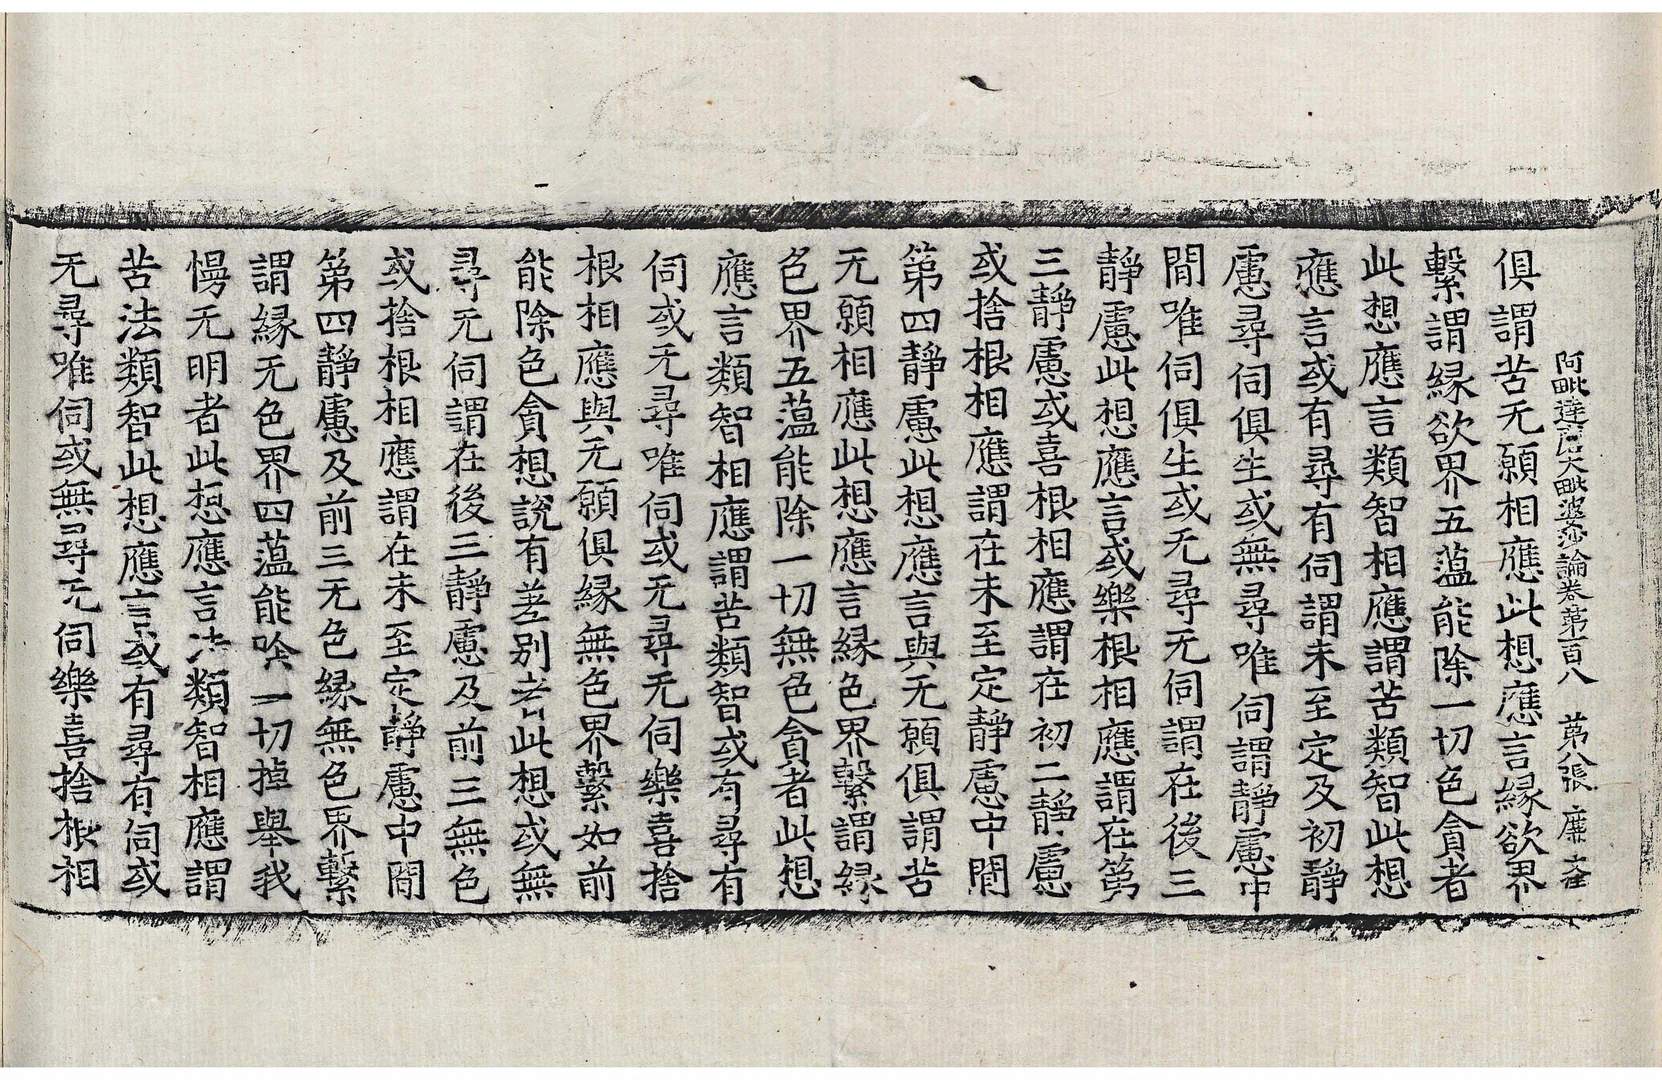 阿毗達磨大毗婆沙論卷第百八 第八張 廉
俱謂苦无願相應此想應言緣欲界
繫謂緣欲界五薀能除一切色貪者
此想應言類智相應謂苦類智此想
應言或有尋有伺謂未至定及初靜
慮尋伺俱生或無尋唯伺謂靜慮中
閒唯伺俱生或无尋无伺謂在後三
靜慮此想應言或樂根相應謂在第
三靜慮或喜根相應謂在初二靜慮
或捨根相應謂在未至定靜慮中閒
第四靜慮此想應言與无願俱謂苦
无願相應此想應言緣色界繫謂緣
色界五薀能除一切無色貪者此想
應言類智相應謂苦類智或有尋有
伺或无尋唯伺或无尋无伺樂喜捨
根相應與无願俱緣無色界繫如前
能除色貪想說有差別者此想或無
尋无伺謂在後三靜慮及前三無色
或捨根相應謂在未至定靜慮中閒
第四靜慮及前三无色緣無色界繫
謂緣无色界四薀能除一切掉舉我
慢无明者此想應言法類智相應謂
苦法類智此想應言或有尋有伺或
无尋唯伺或無尋无伺樂喜捨根相